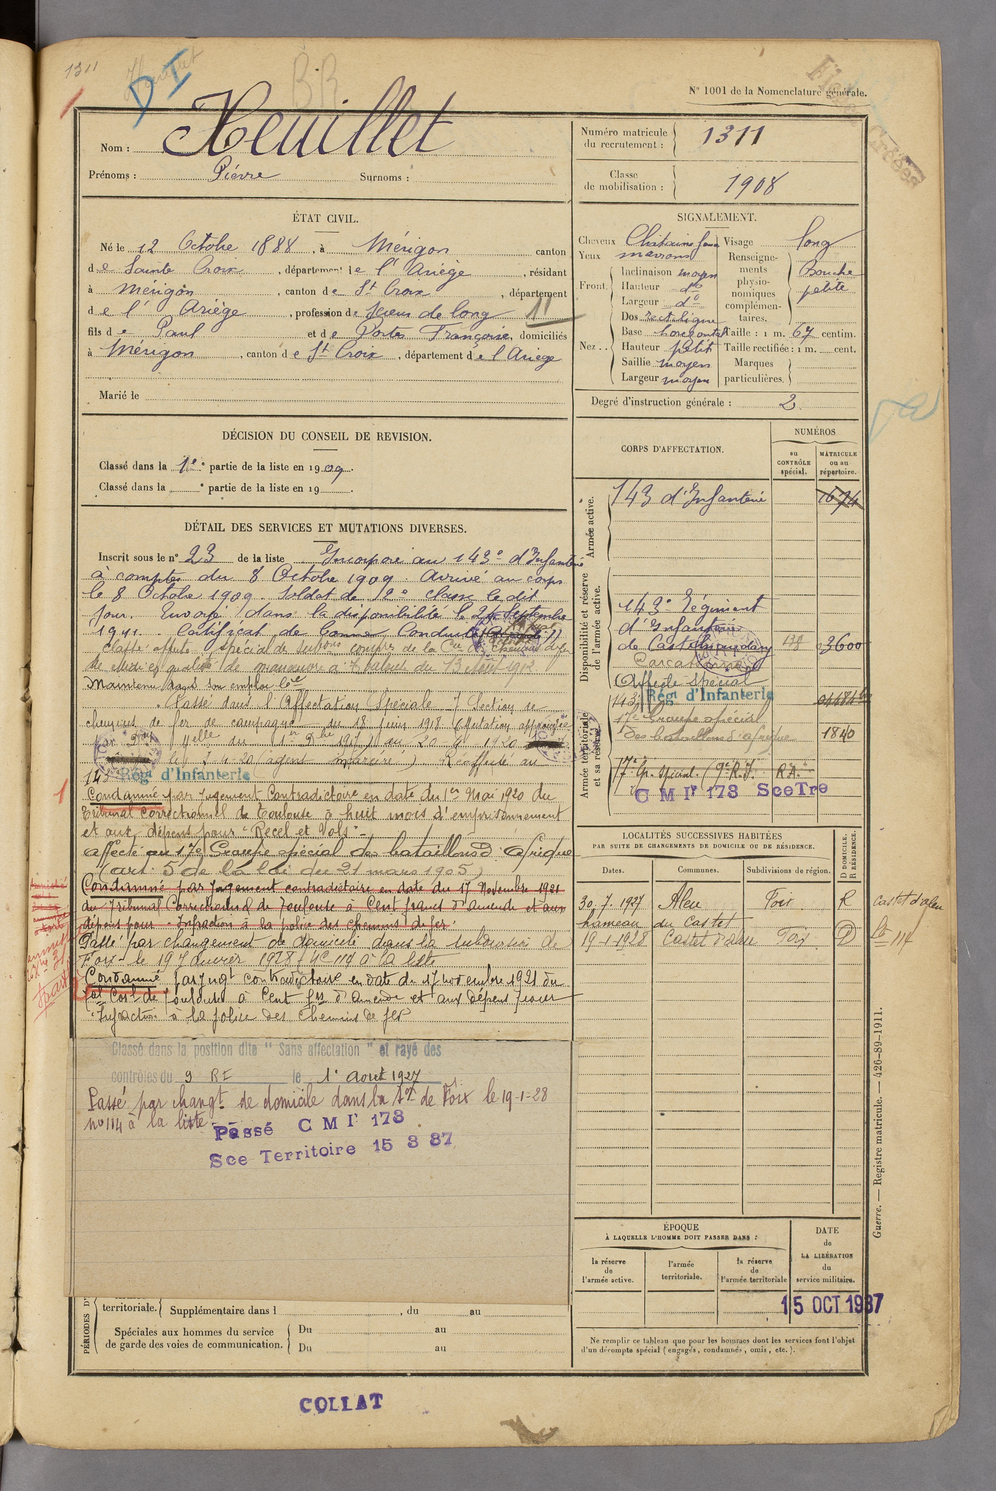 1311
D I
BR
N° 1001 de la Nomenclature générale.
Nom : Heuillet
Prénoms : Pierre Surnoms :
Numéro matricule du recrutement : 1311
Classe de mobilisation : 1908
ÉTAT CIVIL.
Né le 12 Octobre 1888, à Mérigon canton
de Sainte Croix, département de l'Ariège, résidant
à Mérigon, canton de St Croix, département
de l'Ariège, profession de Scieur de long 11
fils de Paul et de Portes Françoise, domiciliés
à Mérigon, canton de St Croix, département de l'Ariège
Marié le
SIGNALEMENT.
Cheveux Chatains
Yeux marrons
Front. Inclinaison moyen
Hauteur do
Largeur do
Nez. Dos rectiligne
Base horizontal
Hauteur petit
Saillie moyen
Largeur moyen
Visage long
Renseignements physionomiques complémentaires. Bouche petite
Taille : 1 m. 67 centim.
Taille rectifiée : 1 m. cent.
Marques particulières.
Degré d'instruction générale : 2
DÉCISION DU CONSEIL DE REVISION.
Classé dans la 1e partie de la liste en 1909.
Classé dans la e partie de la liste en 19
CORPS D'AFFECTATION.
NUMÉROS
au CONTRÔLE spécial.
MATRICULE ou au répertoire.
Armée active.
143 d'Infanterie 1674
Disponibilité et réserve de l'armée active.
143e Régiment
d'Infanterie
de Castelnaudary 178 03600
Carcassonne
Affecté Spécial
143 Rég d'Infanterie
17e Groupe spécial
des bataillons d'afrique 1840
Armée territoriale et sa réserve
17e Gr. Spécial (9e R.I. R.A.
C M Ir 173 Sce Tre
DÉTAIL DES SERVICES ET MUTATIONS DIVERSES.
Inscrit sous le n° 23 de la liste Incorporé au 143e d'Infanterie
à compter du 8 Octobre 1909. Arrivé au corps
le 8 Octobre 1909. Soldat de 2e classe le dit
jour. Envoyé dans la disponibilité le 24 Septembre
1911. Certificat de Bonne Conduite
Maintenu dans son emploi
Classé dans l'Affectation Spéciale 7 Section de
chemins de fer de campagne du 18 juin 1918
Réaffecté au
143 Rég d'Infanterie
Condamné par jugement Contradictoire en date du 1er Mai 1920 du
Tribunal correctionnel de Toulouse à huit mois d'emprisonnement
et aux dépens pour "Recel et Vols"
affecté au 17e Groupe spécial des bataillons d'Afrique
(art. 5 de la loi du 21 mars 1905)
Condamné par jugement contradictoire en date du 17 Novembre 1921
du Tribunal Correctionnel de Toulouse à Cent francs d'amende et aux
dépens pour Infraction à la police des chemins de fer.
Passé par changement de domicile dans la subdivision de
Foix le 19 Janvier 1928 / no 114 à la liste
Condamné par jugt contradictoire en date du 17 novembre 1921 du
tal Corl de Toulouse à Cent frs d'amende et aux dépens pour
"Infraction à la police des chemins de fer
Classé dans la position dite "Sans affectation" et rayé des
contrôles du 9 RE le 1 Aout 1927
Passé par changt de domicile dans la Son de Foix le 19-1-28
no 114 à la liste.
Passé C M Ir 173
Sce Territoire 15 3 37
LOCALITÉS SUCCESSIVES HABITÉES
PAR SUITE DE CHANGEMENTS DE DOMICILE OU DE RÉSIDENCE.
Dates. Communes. Subdivisions de région. D DOMICILE. R RÉSIDENCE.
30.7.1927 Aleu Foix R
hameau du Castet
19-1-1928 Castet d'aleu Foix D
Castet d'aleu
114
ÉPOQUE
À LAQUELLE L'HOMME DOIT PASSER DANS :
la réserve de l'armée active.
l'armée territoriale.
la réserve de l'armée territoriale
DATE de LA LIBÉRATION du service militaire.
15 OCT 1937
Ne remplir ce tableau que pour les hommes dont les services font l'objet
d'un décompte spécial (engagés, condamnés, omis, etc.).
PÉRIODES D'
territoriale. Supplémentaire dans l , du au
Spéciales aux hommes du service de garde des voies de communication. Du au
Du au
Guerre. — Registre matricule. — 426-89-1911.
COLLAT